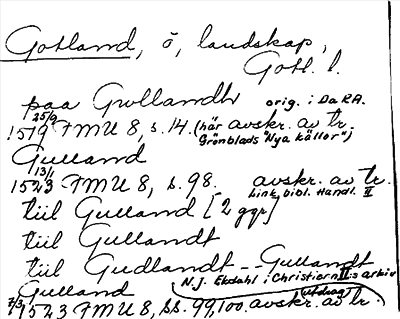 Gotland, ö, landskap,
Gotl. l.
paa Gwllandh orig. i DaRA.
25/9
1519 FMU 8, s. 14. (här avskr. av tr.
Grönblads "Nya källor")
Gulland
13/1
1523 FMU 8, s. 98. avskr. av tr.
Link. bibl. Handl. II
tiil Gulland [2 ggr]
tiil Gullandt
tiil Gudlandt -- Gullandt
N.J. Ekdahl, Christiern II:s arkiv
Gulland (utdrag)
7/3 1523 FMU 8, ss. 99, 100. avskr. av tr.